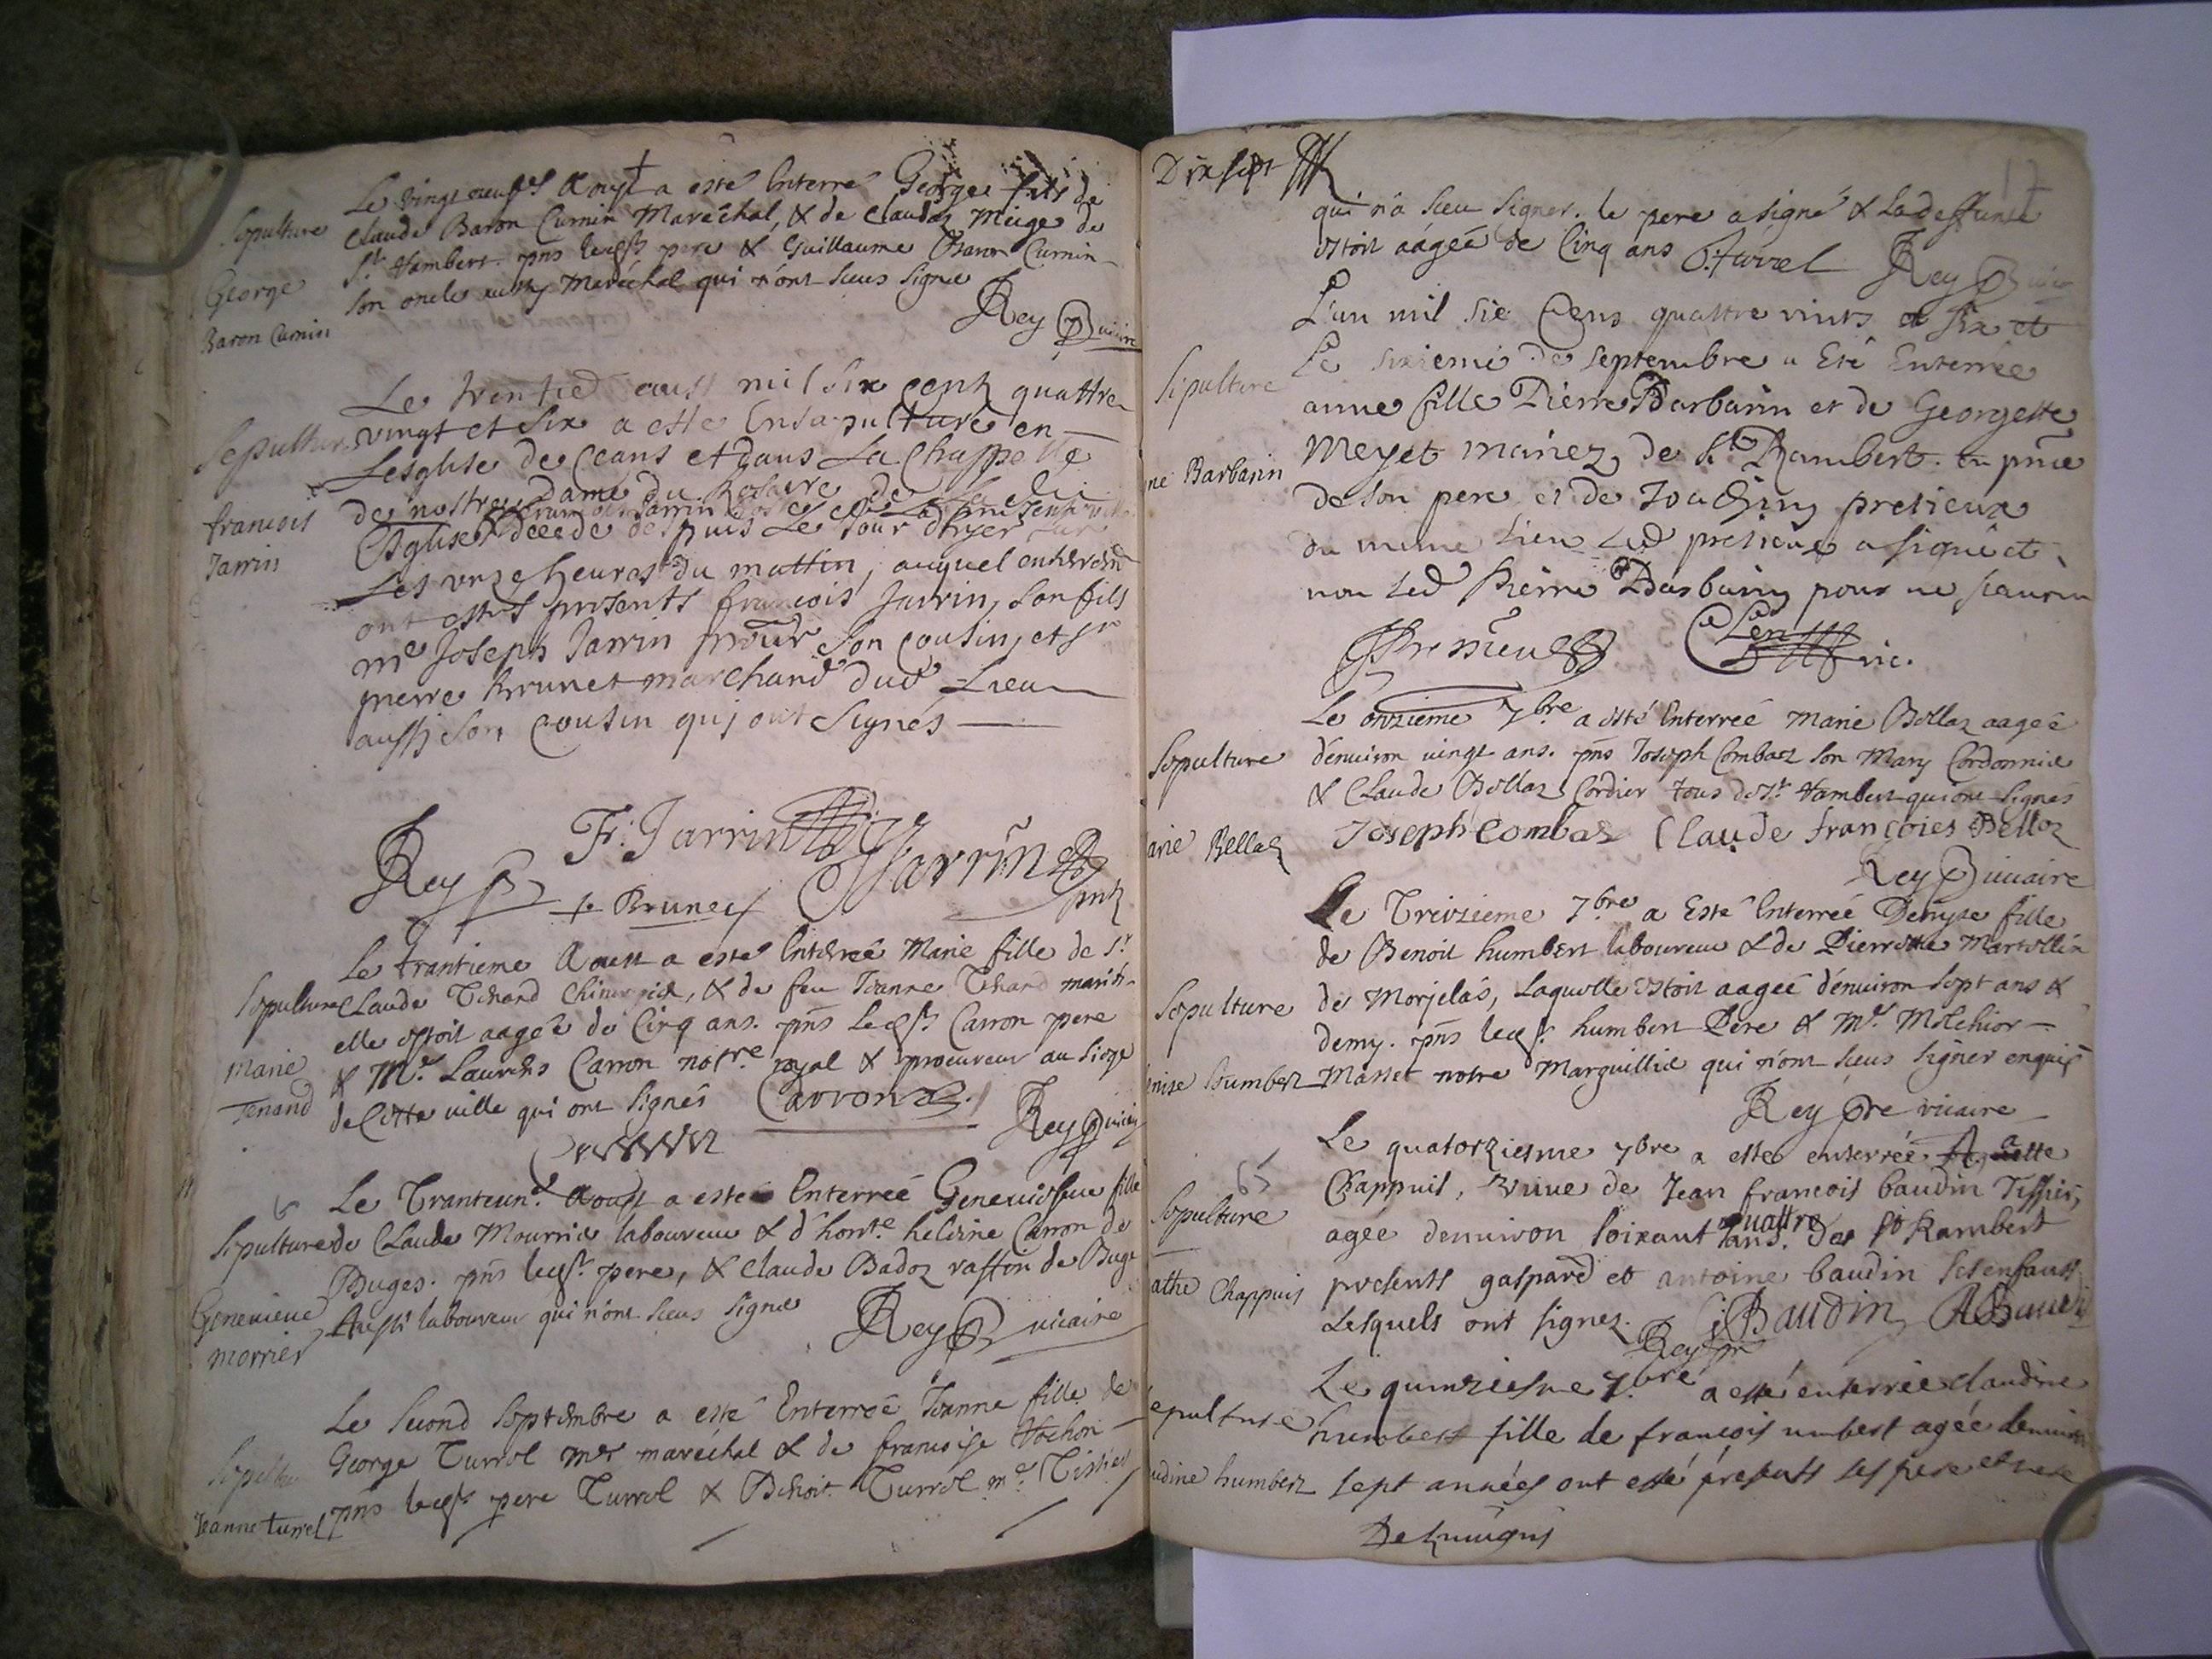 Sepulture
George
Baron Cumin
Le vingt neufe. Aoust a esté Enterré George fils de
Claude Baron Cumin Maréchal, & de Claudaz Meige de
St. Rambert. pñs lecqst. pere & Guillaume Baron Cumin
son oncle aussy Maréchal qui n'ont sceus signer
Rey vicaire
Sepulture
francois
Jarrin
Le trentie aoust mil six centz quattre
vingt et six a esté Ensepulturé en
Lesglise de Ceans et dans La Chappelle
de nostre dame du Rosaire de La dite
Esglise decede depuis Le Jour d'hyer sur
Les unze heures du mattin, auquel enterrem̃t
ont estés presents francois Jarrin, son fils
me Joseph Jarrin son Cousin, et sr
pierre Brunet marchand dud Lieu
aussj son Cousin quj ont Signés
F. Jarrin
Jarrin
Rey
Brunet
pnt
Sepulture
Marie
Tenand
Le trantieme Aoust a esté Enterreé Marie fille de Sr.
Claude Tenand Chirurgien, & de feu Jeanne
elle estoit aageé de Cinq ans. pñs Lecqst. Carron pere
& Me. Laurens Carron notre. royal & procureur au siege
de Cette ville qui ont signés Carron
Rey
Sepulture
Genevieve
morrier
Le Tranteune. Aoust a esté Enterreé Geneviefve fille
de Claude Mourrier laboureur & d'honte. heleine Carron de
Buges. pñs lecqst. pere, & Claude Badoz raffin de Buge
Aussi laboureur qui n'ont sceus signer
Rey vicaire
Sepulture
Jeanne turrel
Le second Septembre a esté Enterreé Jeanne fille de
George Turrel Mre maréchal & de francoise Vochon
pñs lecqst. pere Turrel & Benoit Turrel me. Tissier
Dix sept
17
qui n'a sceu signer. le pere a signé & Ladeffunte
estoit aágeé de Cinq ans G. turrel Rey
L'an mil sie Cens quattre vints et six et
Le sixieme de septembre a Eté Enterrée
Sepulture
ne Barbarin
anne fille Pierre Barbarin et de Georgette
Meyet mariez de St Rambert. en pñce
de son pere et de Joachim pretieux
du meme Lieu Led pretieux a signé et
non Led Pierre Barbarin pour ne scauoir
vic.
Sepulture
arie Bellaz
Le onzieme 7bre a esté Enterreé Marie Bellaz aageé
d'enuiron vingt ans. pñs Joseph Combaz son Mary Cordonnier
& Claude Bellaz Cordier tous de St. Rambert qui ont signés
Joseph Combaz Claude françoies Belloz
Rey vicaire
Sepulture
nise humbert
Le Treizieme 7bre a Esté Enterreé Denyse fille
de Benoit humbert laboureur & de Pierrette Martellin
de Morjelas, Laquelle estoit aageé d'enuiron sept ans &
demy. pñs lecqst. humbert Pere & Me. Melchior
Masset notre Marguillier qui n'ont sceus signer enquis
Rey pre vicaire
Sepulture
athe Chappuis
Le quatorziesme 7bre a esté enterrée
Chappuis, veuve de Jean francois baudin Tissier,
agée denuiron soixant quattre ans. de St Rambert
presents gaspard et antoine baudin ses enfants
Lesquels ont signez. G Baudin A Baudin
Rey pre
epulture
udine humbert
Le quinziesme 7.bre a esté enterrée claudine
humbert fille de francois umbert agée denuiron
sept années ont esté présents ses pere et mere